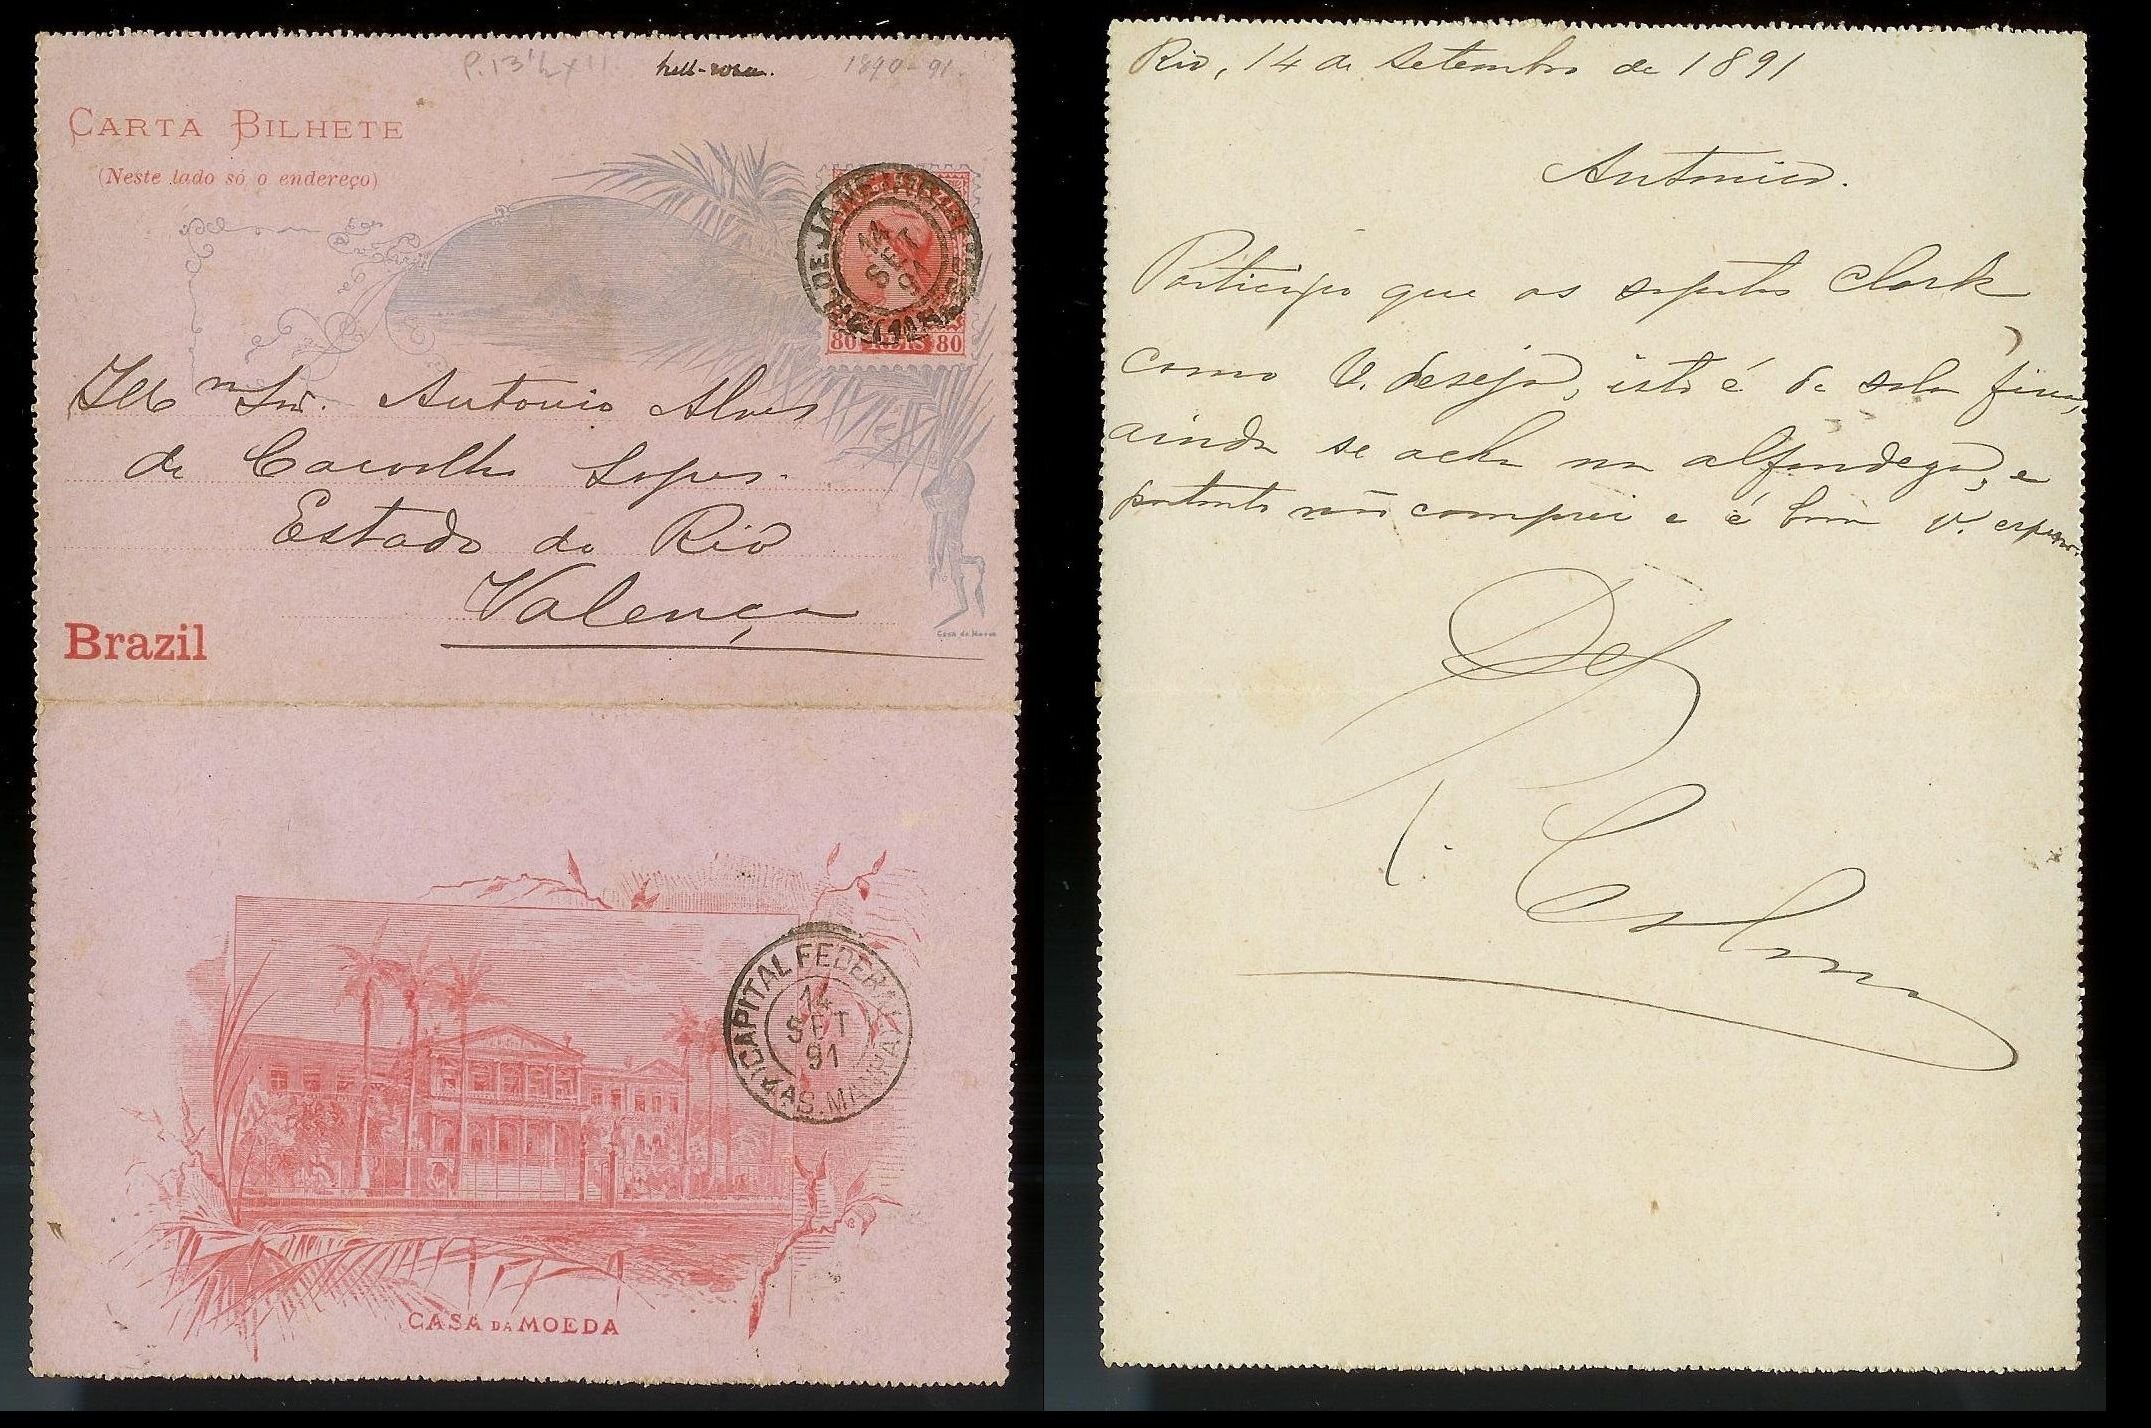 P. 13½ x 11
hell-rosa.
1890-91
CARTA BILHETE
(Neste lado só o endereço)
14
SET
91
80 REIS 80
Illmo Snr. Antonio Alves
de Carvalho Lopes.
Estado do Rio
Valença
Brazil
Casa da Moeda
CAPITAL FEDERAL
14
SET
91
4 AS. MANHA
CASA DA MOEDA
Rio, 14 de Setembro de 1891
Antonico.
Participo que os sapatos Clark
como V. deseja, isto é de sola fina,
ainda se acha na alfandega, e
portanto não comprei e é bom V. esperar.